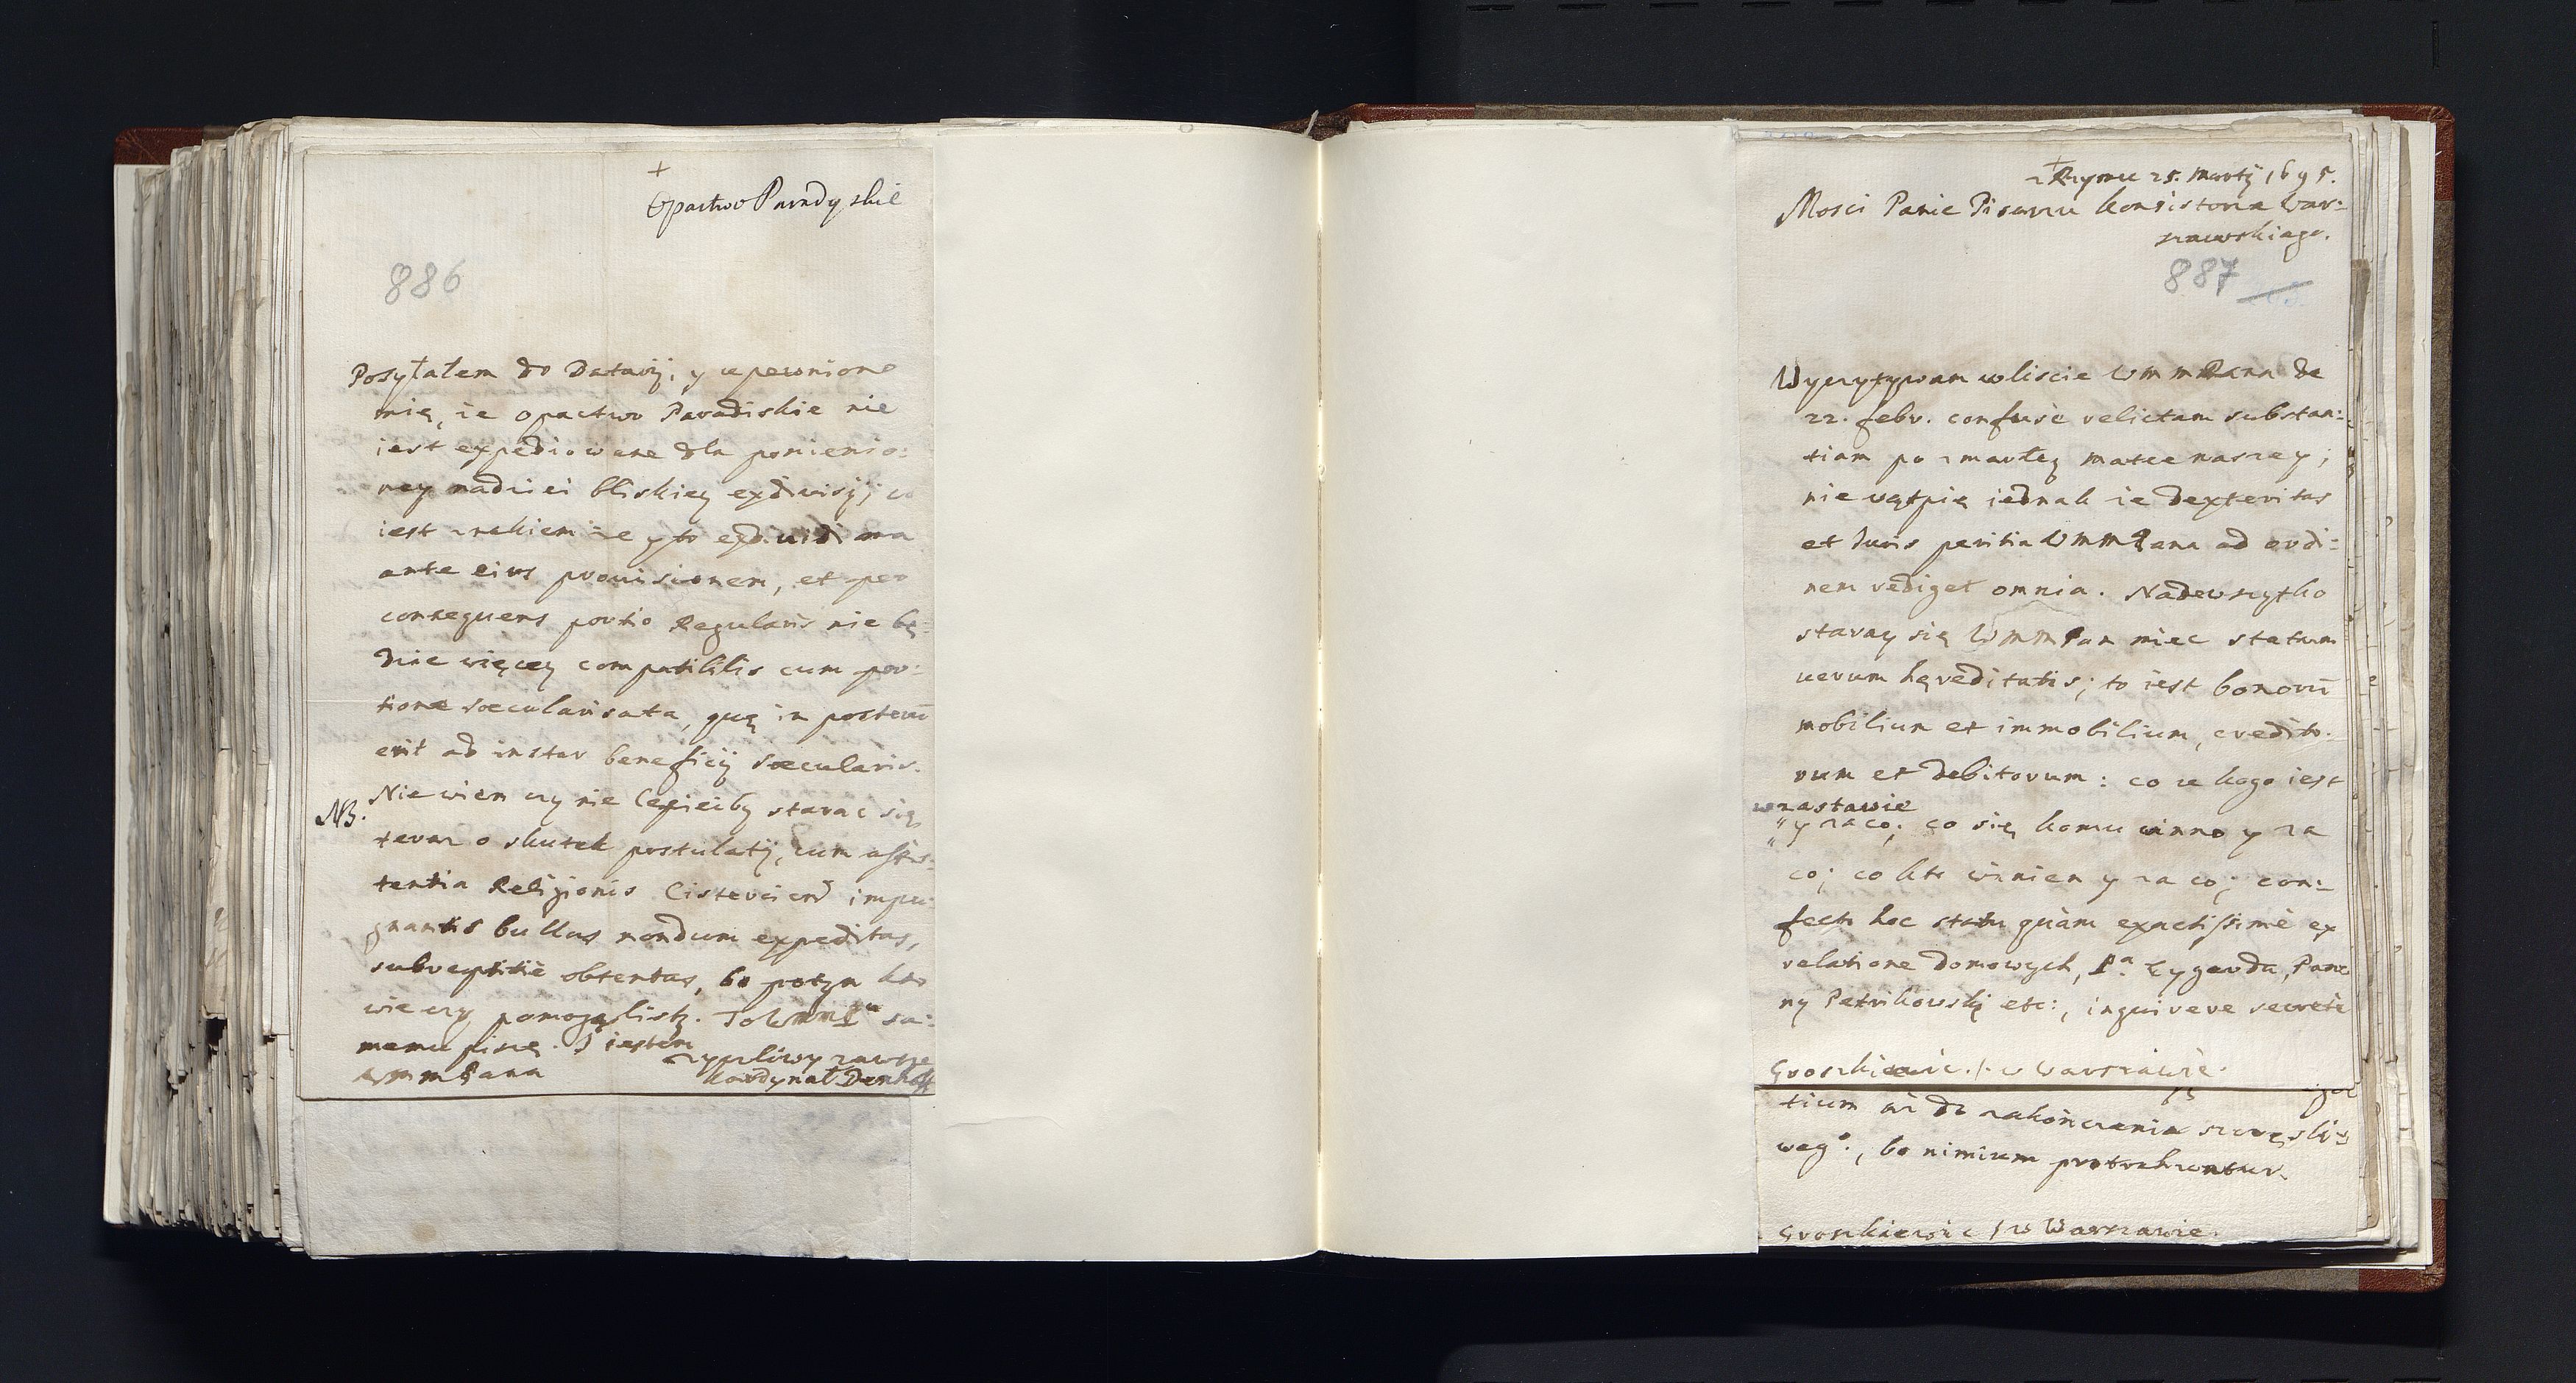 +
Opactwo Paradyskie
886
Posyłałem do Datarij, y upewniono
mię, że opactwo Paradiskie nie
iest expediowane dla ponienio:
ney nadziei bliskiey exdivisij; co
iest znakiem że y to exdividi ma
ante eius provisionem, et per
consequens portio Regularis nie bę:
dzie więcey compatibilis cum por:
tione sæcularisata, quę in posterū
erit ad instar beneficij sæcularis.
NB.
Nie wiem czy nie lepieiby starac się
teraz o skutek postulatij, cum assis:
tentia Religionis Cisterciens impu:
gnantis bullas nondum expeditas,
subreptitiè obtentas, bo potym kto
wie czy pomogą listy. To WmmPu sa:
memu piszę. I iestem
WmmPana
zyczliwy zawsze
Kardynał Denhoff
+
z Rzymu 25. Martij 1695.
Mosci Panie Pisarzu Konsistorza War:
szawskiego.
887
Wyczytywam w liscie WmmPana de
22. febr. confusè relictam substan:
tiam po zmarłey Matce naszey;
nie wątpię iednak że dexteritas
et Iuris peritia WmmPana ad ordi:
nem rediget omnia. Nadewszytko
staray się WmmPan miec statum
verum hęreditatis; to iest bonorū
mobilium et immobilium, credito:
rum et debitorum: co u kogo iest
w zastawie
" y za co; co się komu winno y za
co; co kto winien y za co; con:
fecto hoc statu quàm exactissimè ex
relatione domowych, Pa. Zygarda, Pan
ny Petrikowskį etc:, inquirere secretè
Groszkiewic. / w Warszawie.
tium aż do zakonczenia szczęśli:
wego., bo nimium protrahuntur.
Groszkiewic / w Warszawie.